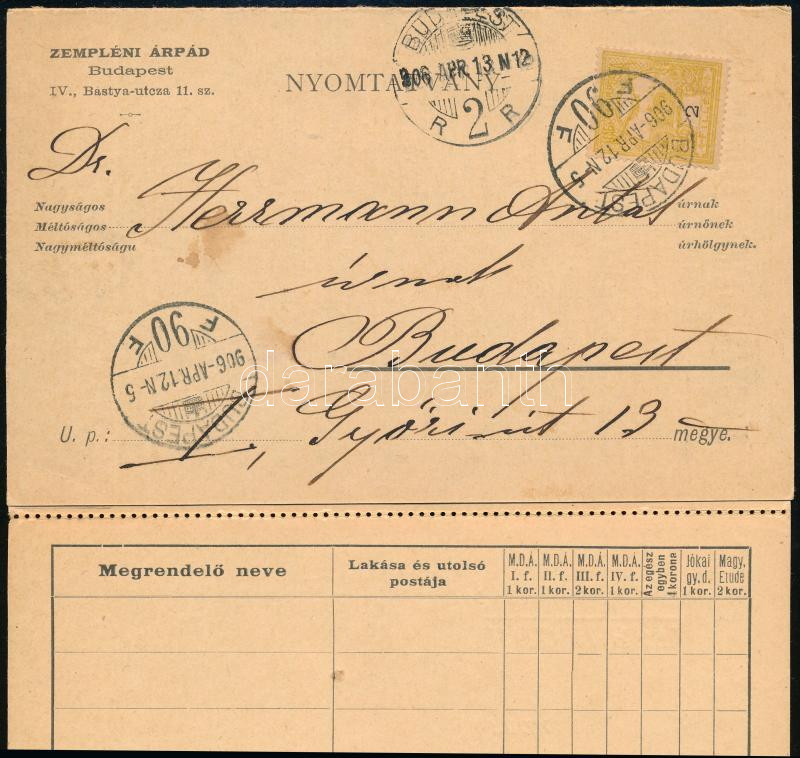 ZEMPLÉNI ÁRPÁD
Budapest
IV., Bastya-utcza 11. sz.
NYOMTATVÁNY
BUDAPEST
906 APR. 13 N 12
R 2 R
2
F 90 F
906-APR. 12. N-5
BUDAPEST
Dr. Herrmann Antal
Nagyságos
Méltóságos
Nagyméltóságu
úrnak
úrnőnek
úrhölgynek.
úrnak
Budapest
F 90 F
906-APR. 12. N-5
BUDAPEST
I, Győri-út 13
U. p.: megye.
darabanth
Megrendelő neve
Lakása és utolsó
postája
M.D.Á.
I. f.
1 kor.
M.D.Á.
II. f.
1 kor.
M.D.Á.
III. f.
2 kor.
M.D.Á.
IV. f.
1 kor.
Az egész
egyben
4 korona
Jókai
gy. d.
1 kor.
Magy.
Etude
2 kor.